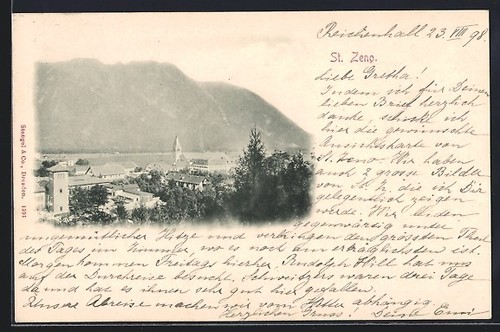 Reichenhall 23. VIII 98.
St. Zeno.
Liebe Gretha!
Indem ich für Deinen
lieben Brief herzlich
danke, schicke ich
hier die gewünschte
Ansichtskarte von
St. Zeno. Wir haben
auch 2 grosse Bilder
von St. Z, die ich Dir
gelegentlich zeigen
werde. Wir leiden
gegenwärtig unter
ungemüthlicher Hitze und verbringen den grössten Theil
des Tages im Zimmer, wo es noch am erträglichsten ist.
Morgen kommen Freitags hierher, Rudolph Hill hat uns
auf der Durchreise besucht, Schweitzers waren drei Tage
da und hat es ihnen sehr gut hier gefallen.
Unsere Abreise machen wir vom Wetter abhängig.
Herzlichen Gruss! Deine Emi
Stengel & Co., Dresden. 1291